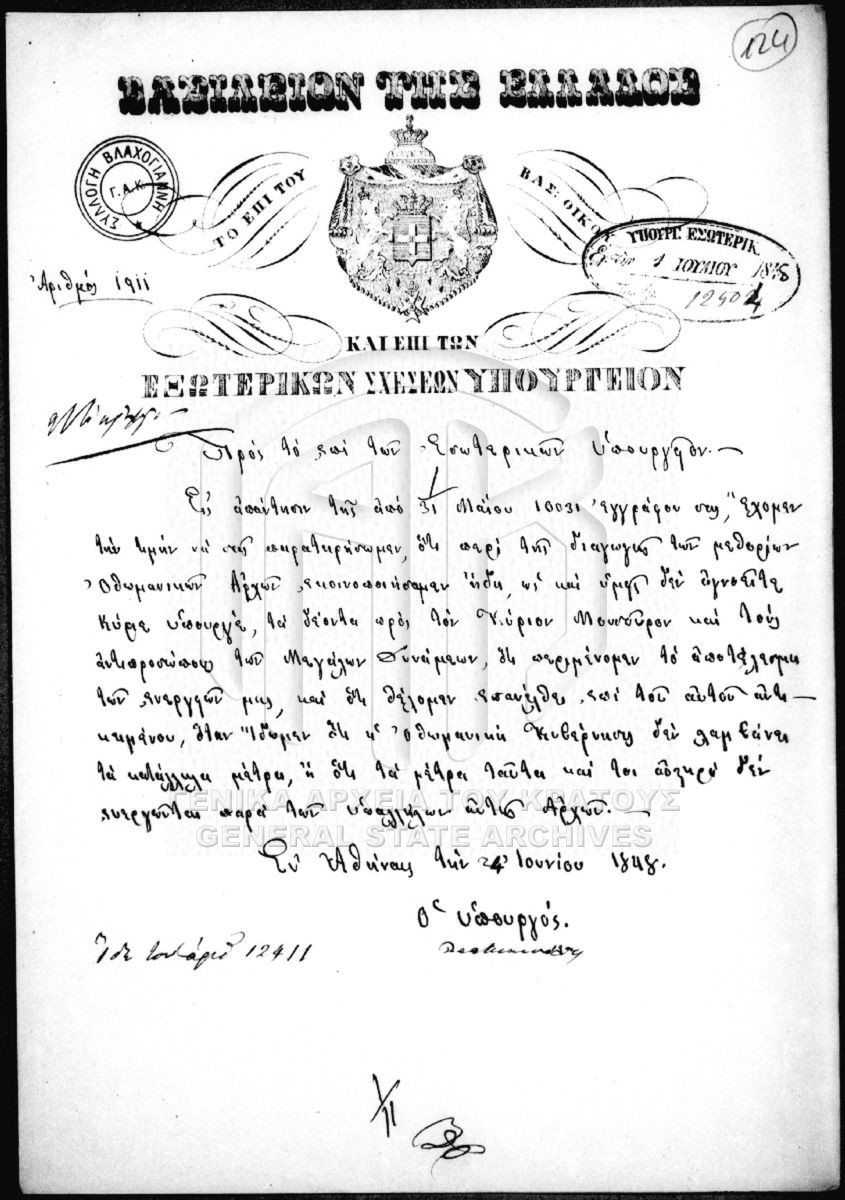 124
ΒΑΣΙΛΕΙΟΝ ΤΗΣ ΕΛΛΑΔΟΣ
ΣΥΛΛΟΓΗ ΒΛΑΧΟΓΙΑΝΝΗ
Γ.Α.Κ.
ΤΟ ΕΠΙ ΤΟΥ ΒΑΣ: ΟΙΚΟΥ
ΥΠΟΥΡΓ. ΕΣΩΤΕΡΙΚ.
1 ΙΟΥΛΙΟΥ 1848
Ἀριθμός 1911
ΚΑΙ ΕΠΙ ΤΩΝ
ΕΞΩΤΕΡΙΚΩΝ ΣΧΕΣΕΩΝ ΥΠΟΥΡΓΕΙΟΝ
Πρός τό ἐπί τῶν Ἐσωτερικῶν Ὑπουργεῖον.—
Εἰς ἀπάντησιν τῆς ἀπό 31 Μαΐου 10031 ἐγγράφου σας, ἔχομεν
τήν τιμήν νά σᾶς παρατηρήσωμεν, ὅτι περί τῆς διαγωγῆς τῶν μεθορίων
Ὀθωμανικῶν Ἀρχῶν ἐκοινοποιήσαμεν ἤδη, ὡς καί ὑμεῖς δέν ἀγνοεῖτε
Κύριε Ὑπουργέ, τά δέοντα πρός τόν Κύριον Μουσοῦρον καί τούς
ἀντιπροσώπους τῶν Μεγάλων Δυνάμεων, ὅτι περιμένομεν τό ἀποτέλεσμα
τῶν ἐνεργειῶν μας, καί ὅτι θέλομεν ἐπανέλθει ἐπί τοῦ αὐτοῦ ἀντι—
κειμένου, ὅταν ἴδωμεν ὅτι ἡ Ὀθωμανική Κυβέρνησις δέν λαμβάνει
τά κατάλληλα μέτρα, ἤ ὅτι τά μέτρα ταῦτα καί τοι αὐστηρά δέν
ἐνεργοῦνται παρά τῶν ὑπαλλήλων αὐτῆς Ἀρχῶν.—
ΓΕΝΙΚΑ ΑΡΧΕΙΑ ΤΟΥ ΚΡΑΤΟΥΣ
GENERAL STATE ARCHIVES
Ἐν Ἀθήναις τήν 24 Ἰουνίου 1848.
Ὁ Ὑπουργός.
Ἴδε τόν ἀριθ 12411